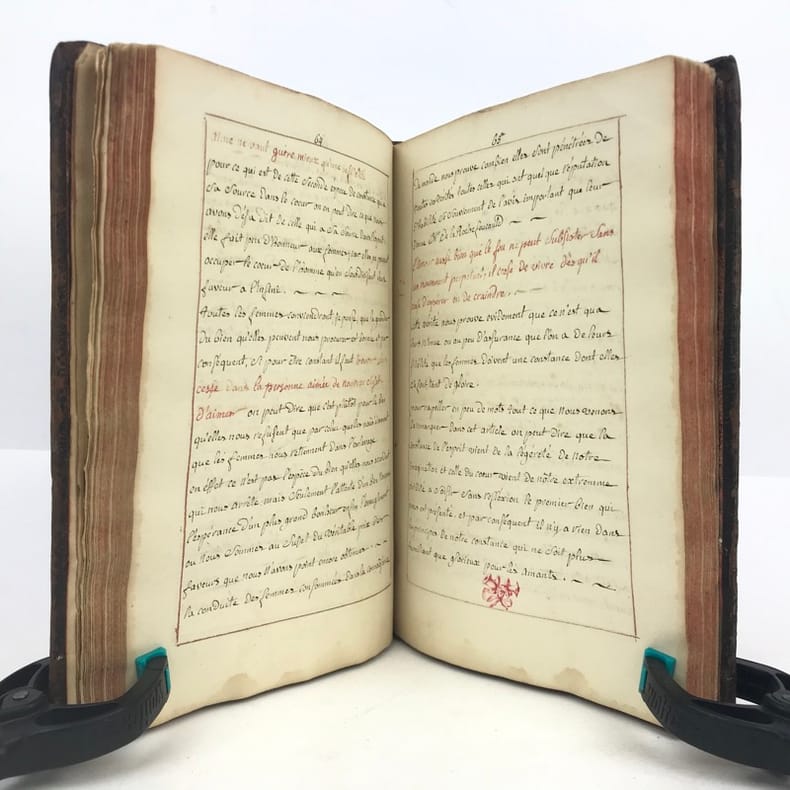 64
même ne vaut guère mieux qu'une
pour ce qui est de cette seconde espece de constance qui a
sa source dans le coeur on en peut dire ce que nous
avons déja dit de celle qui a sa source dans l'esprit
elle fait peu d'honneur aux femmes car elles ne peuvent
occuper le coeur de l'homme qu'en
faveur a l'infini.
toutes les femmes conviendront je pense, que la
du bien qu'elles peuvent nous procurer est bornée et par
conséquent, si pour être constant il faut trouver sans
cesse dans la personne aimée de nouveaux sujets
d'aimer on peut dire que c'est plutôt par le bien
qu'elles nous refusent que par celui
que les femmes nous retiennent dans l'esclavage
en effet ce n'est pas l'espéce du bien qu'elles nous
qui nous arrête mais seulement l'attente d'un bien
l'espérance d'un plus grand bonheur enfin
ou nous sommes au sujet du véritable prix des
faveurs que nous n'avons point encore obtenues.
la conduite des femmes consommées dans la connoissance
65
du monde nous prouve combien elles sont pénétrées de
toutes celles qui ont quelque réputation
d'habileté se souviennent de l'avis important que leur
donne Mr. De la Rochefoucauld
l'amour aussi bien que le feu ne peut subsister sans
un mouvement perpetuel; il cesse de vivre dès qu'il
cesse d'esperer ou de craindre.
cette vérité nous prouve evidemment que ce n'est qu'a
ou au peu d'assurance que l'on a de leurs
que les femmes doivent une constance dont elles
se font tant de gloire.
pour rapeller en peu de mots tout ce que nous venons
de remarquer dans cet article on peut dire que la
constance de l'esprit vient de la légéreté de notre
imagination et celle du coeur vient de nôtre extremme
a saisir sans reflexion le premier bien qui
nous est présenté, et par conséquent il n'y a rien dans
le principe de notre constance qui ne soit plus
humiliant que glorieux pour les amants.